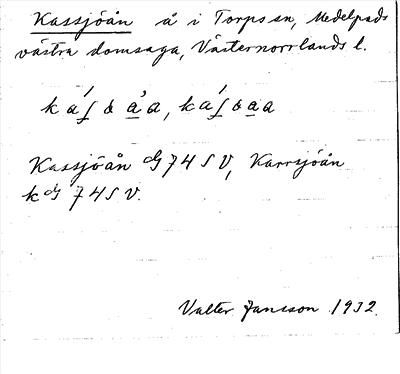 Kassjöån å i Torps sn, Medelpads
västra domsaga, Västernorrlands l.
Kassjöån G 74 S V, Karrsjöån
k G 74 S V.
Valter Jansson 1932.